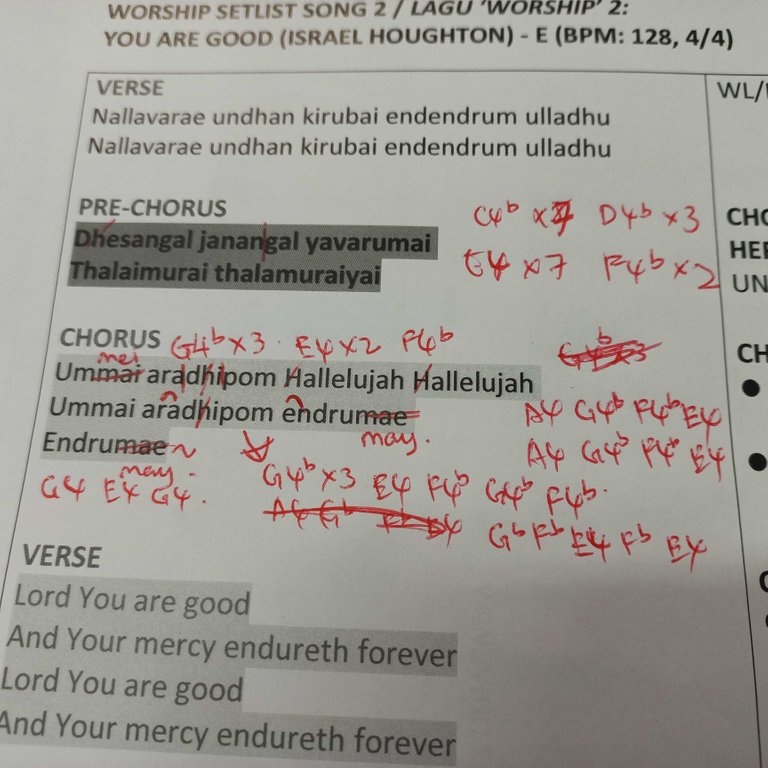 WORSHIP SETLIST SONG 2 / LAGU 'WORSHIP' 2:
YOU ARE GOOD (ISRAEL HOUGHTON) - E (BPM: 128, 4/4)
VERSE
WL/
Nallavarae undhan kirubai endendrum ulladhu
Nallavarae undhan kirubai endendrum ulladhu
PRE-CHORUS
C4b x D4b x3
CHO
Dhesangal janangal yavarumai
HEE
Thalaimurai thalamuraiyai
E4 x7 F4b x2
UN
CHORUS
G4b x3. E4 x2 F4b
CH
mei
Ummai aradhipom Hallelujah Hallelujah
Ummai aradhipom endrumae
A4 G4b F4b E4
may.
Endrumae
A4 G4b F4b E4
may.
G4b x3 E4 F4b G4b F4b.
G4 E4 G4.
Gb Fb E4 Fb E4
VERSE
Lord You are good
And Your mercy endureth forever
Lord You are good
And Your mercy endureth forever